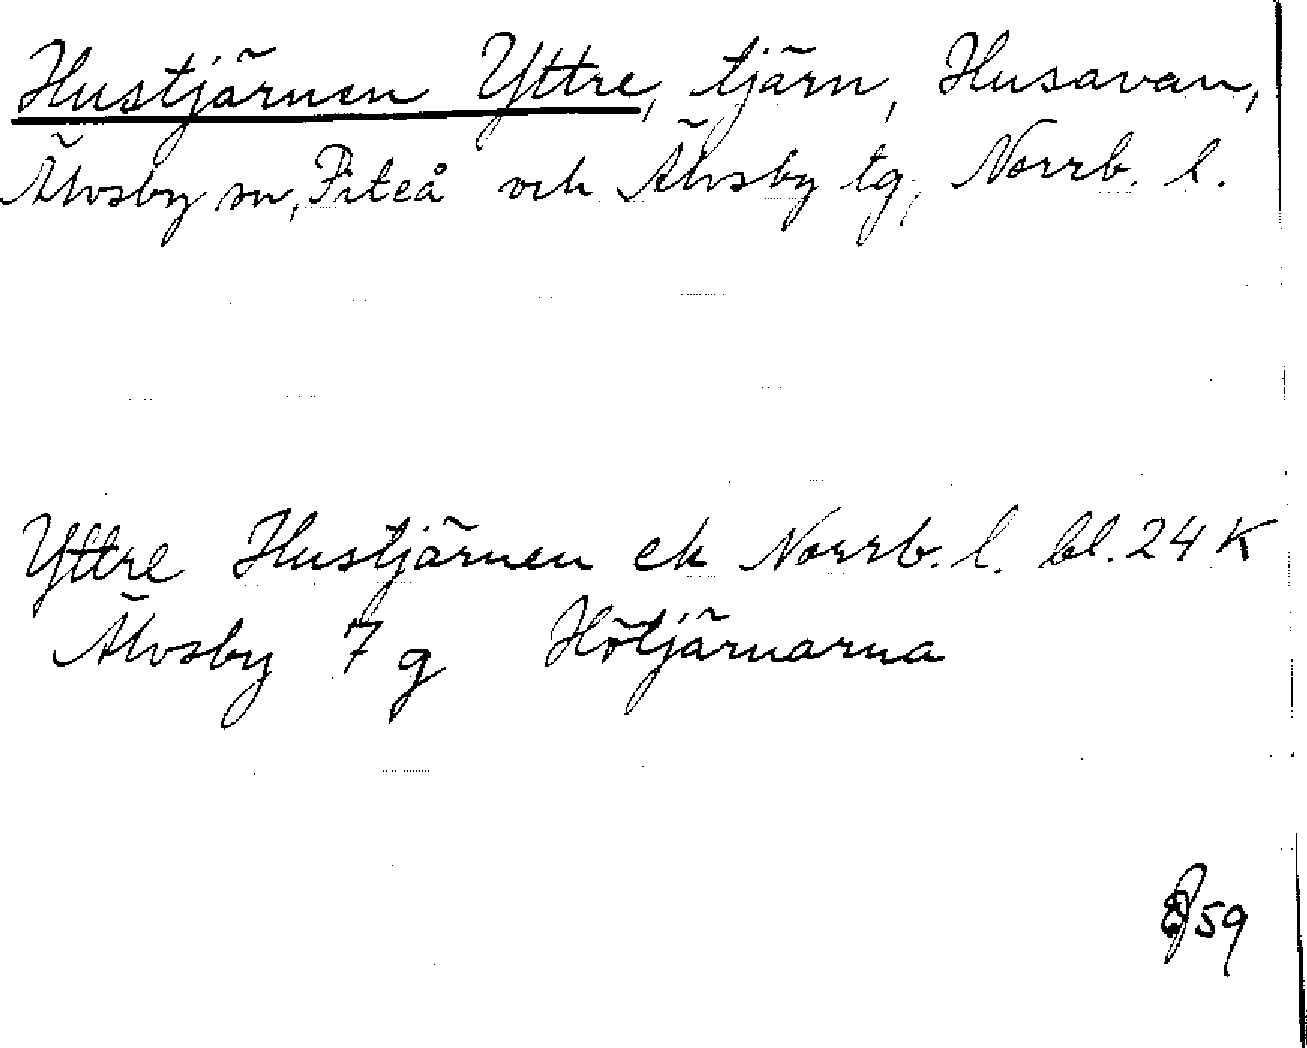 Hustjärnen Yttre, tjärn, Husavan,
Älvsby sn, Piteå och Älvsby tg, Norrb. l.
Yttre Hustjärnen ek Norrb. l. bl. 24 K
Älvsby 7 g Hötjärnarna
59